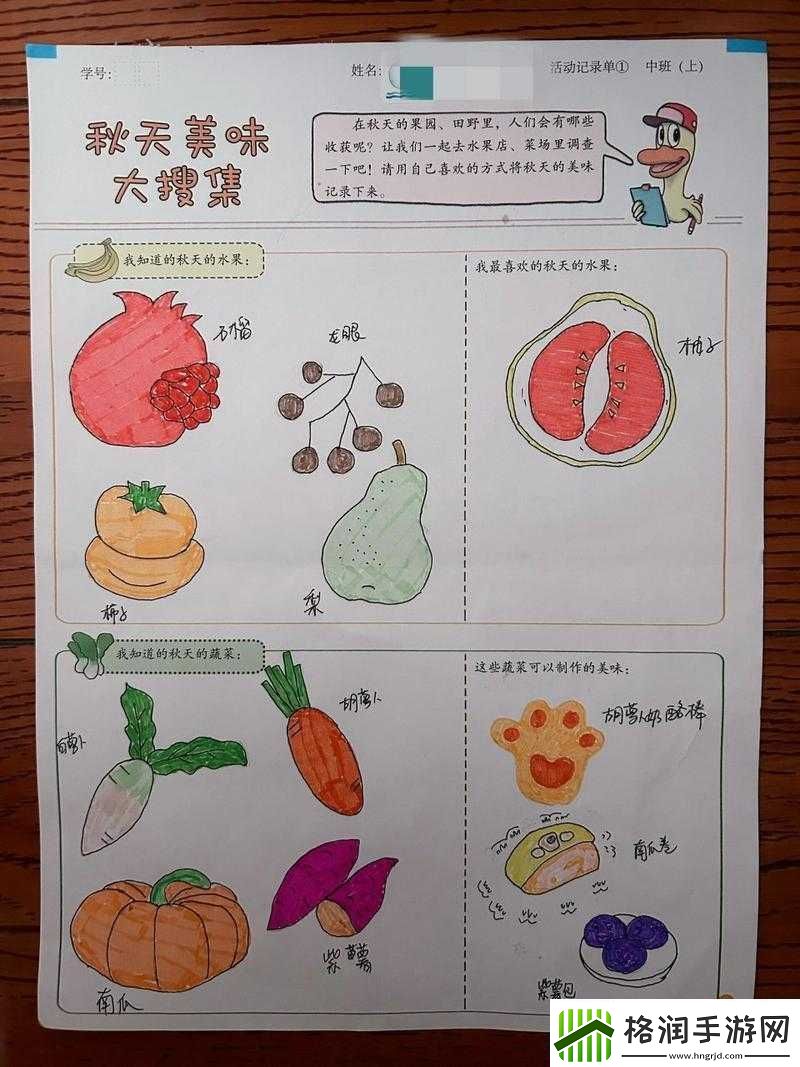 学号:
姓名:
活动记录单① 中班（上）
秋天美味
大搜集
在秋天的果园、田野里，人们会有哪些
收获呢？让我们一起去水果店、菜场里调查
一下吧！请用自己喜欢的方式将秋天的美味
记录下来。
我知道的秋天的水果：
我最喜欢的秋天的水果：
石榴
龙眼
柚子
柿子
梨
我知道的秋天的蔬菜：
这些蔬菜可以制作的美味：
白萝卜
胡萝卜
胡萝卜奶酪棒
南瓜卷
南瓜
紫薯
紫薯包
格润手游网
www.hngrjd.com